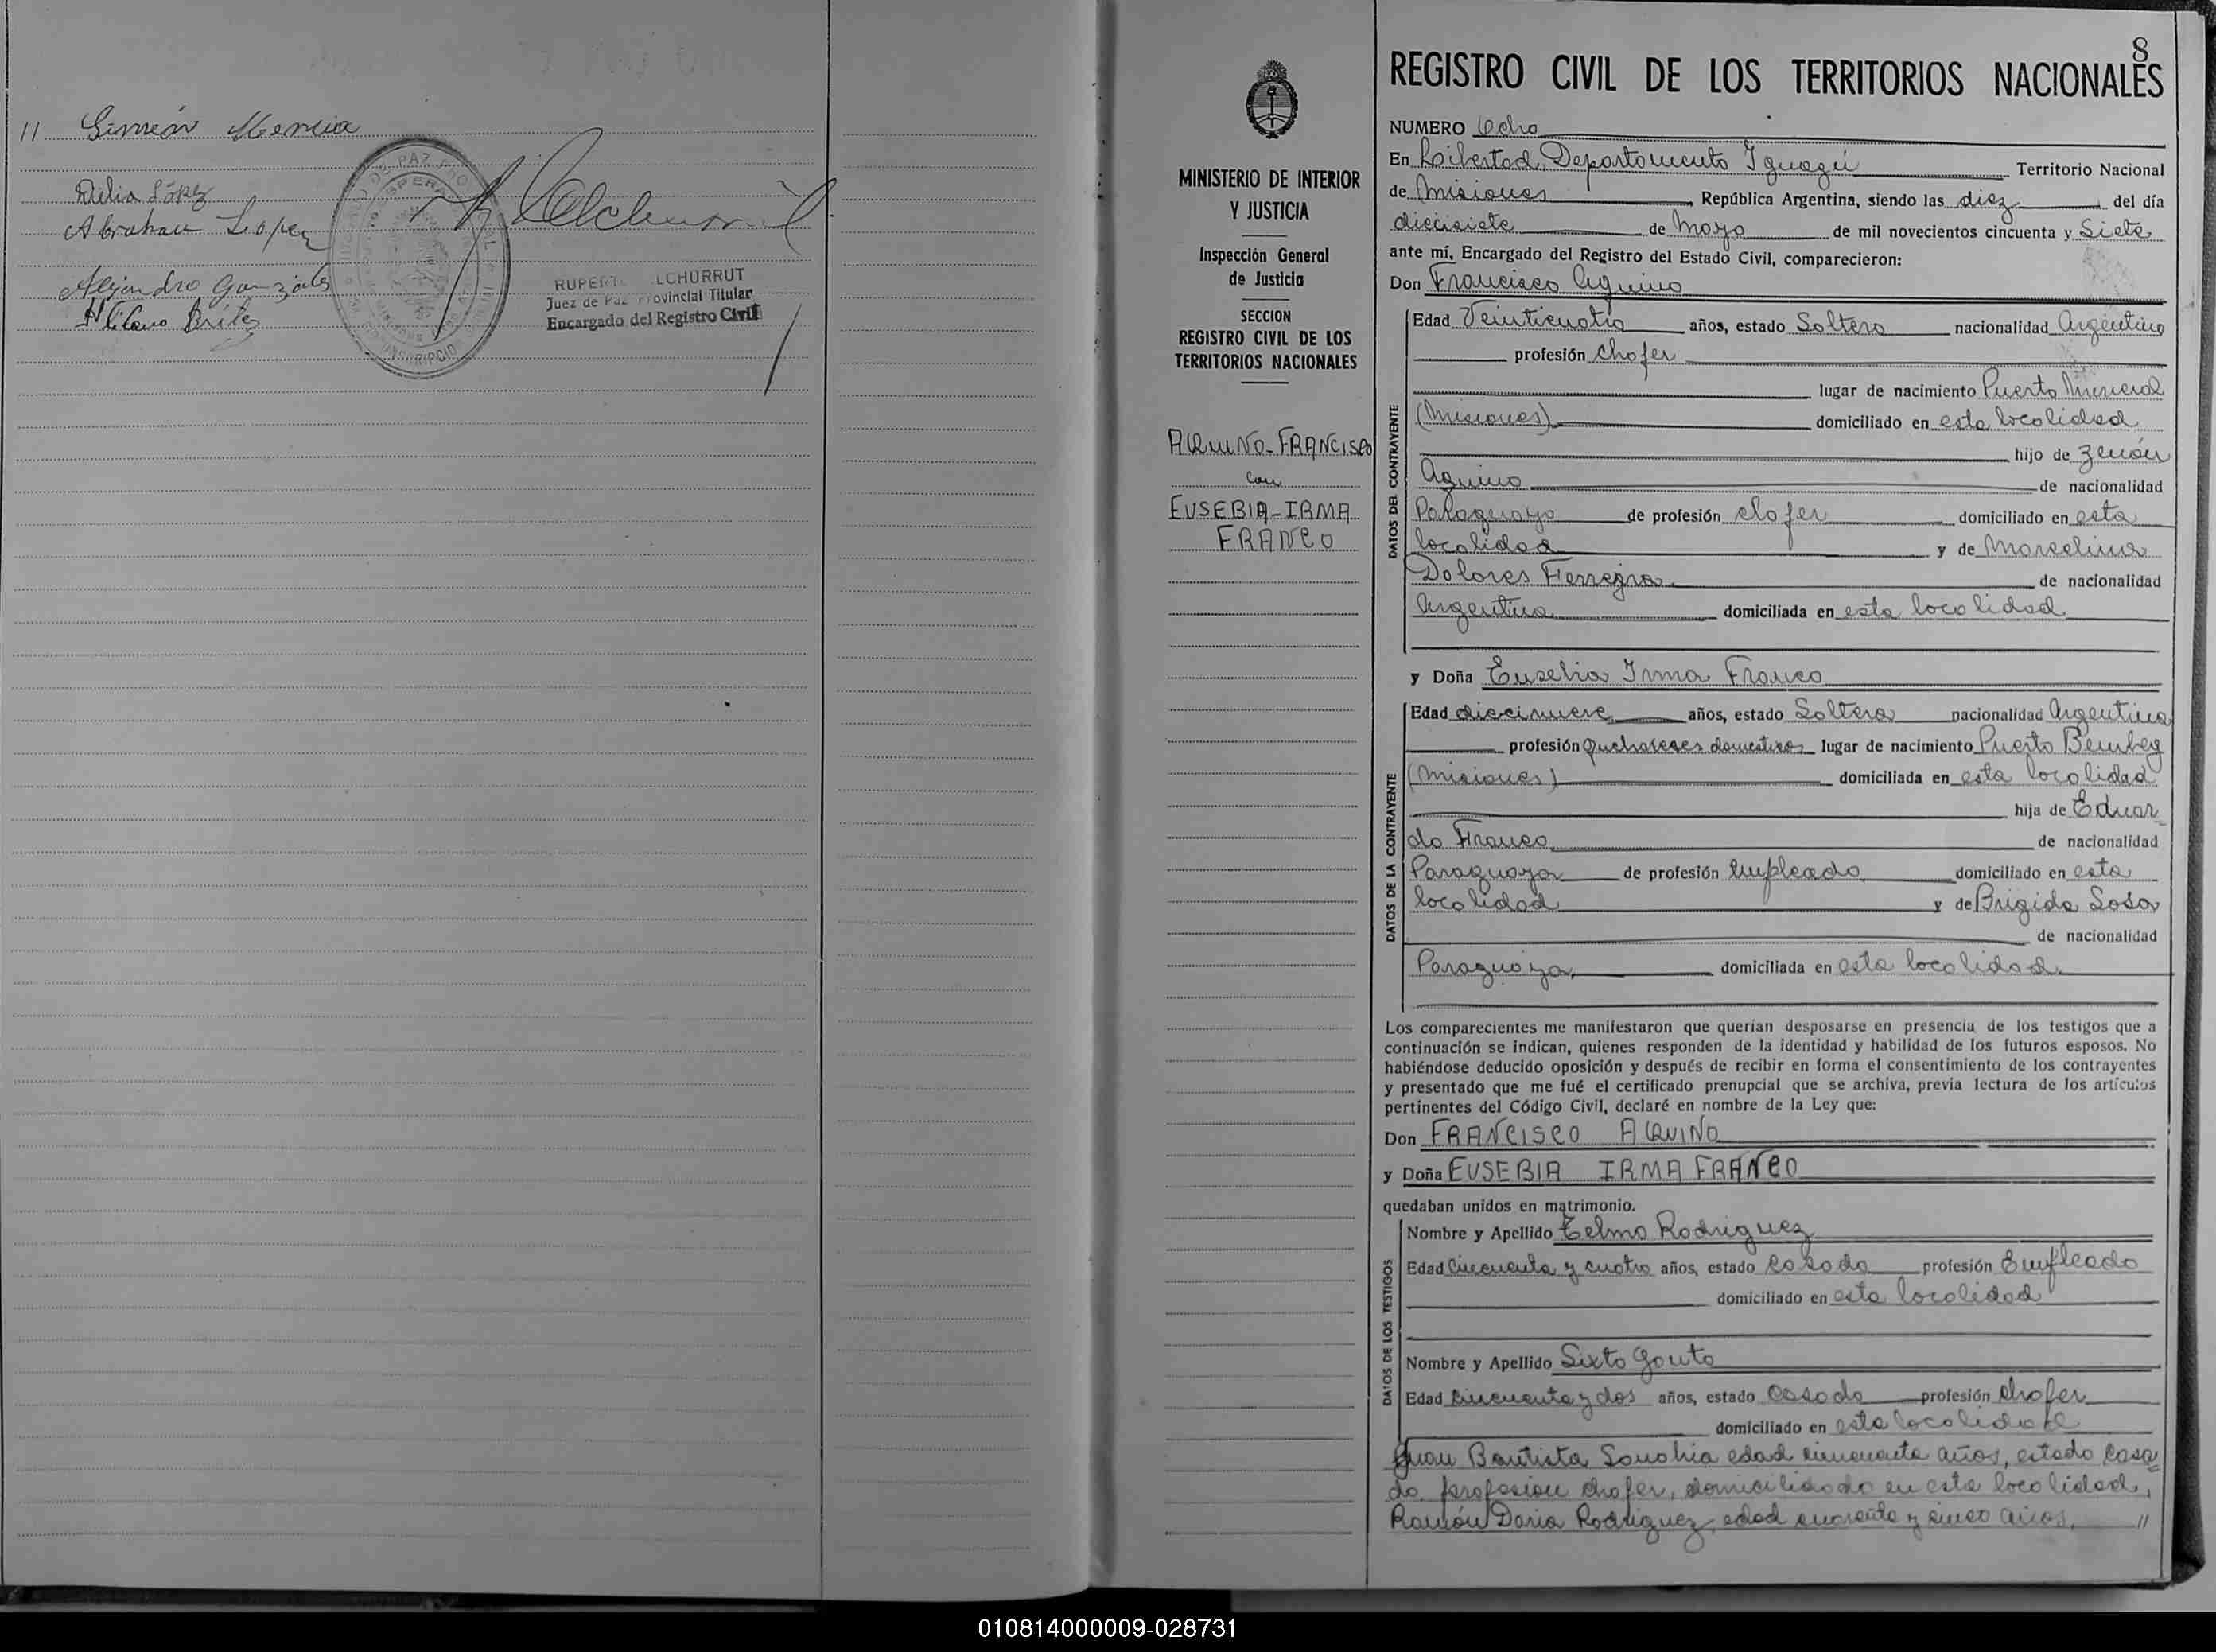 11 Simeón Mencia
Delia López
Abraham Lopez
Alejandro Gonzáles
Hilario Brites
RUPERT LCHURRUT
Juez de Paz Provincial Titular
Encargado del Registro Civil
MINISTERIO DE INTERIOR
Y JUSTICIA
Inspección General
de Justicia
SECCION
REGISTRO CIVIL DE LOS
TERRITORIOS NACIONALES
AQUINO-FRANCISCO
con
EUSEBIA-IRMA
FRANCO
8
REGISTRO CIVIL DE LOS TERRITORIOS NACIONALES
NUMERO Ocho
En Libertad, Departamento Iguazú Territorio Nacional
de Misiones, República Argentina, siendo las diez del día
diecisiete de Mayo de mil novecientos cincuenta y Siete
ante mí, Encargado del Registro del Estado Civil, comparecieron:
Don Francisco Aquino
DATOS DEL CONTRAYENTE
Edad Veinticuatro años, estado Soltero nacionalidad Argentino
profesión Chofer
lugar de nacimiento Puerto Mineral
(Misiones) domiciliado en esta localidad
hijo de Zenón
Aquino de nacionalidad
Paraguayo de profesión chofer domiciliado en esta
localidad y de Marcelina
Dolores Ferreyra de nacionalidad
Argentina domiciliada en esta localidad
y Doña Eusebia Irma Franco
DATOS DE LA CONTRAYENTE
Edad diecinueve años, estado Soltera nacionalidad Argentina
profesión Quehaceres domesticos lugar de nacimiento Puerto Bemberg
(Misiones) domiciliada en esta localidad
hija de Eduar
do Franco de nacionalidad
Paraguaya de profesión Empleado domiciliado en esta
localidad y de Brigida Sosa
de nacionalidad
Paraguaya, domiciliada en esta localidad.
Los comparecientes me manifestaron que querían desposarse en presencia de los testigos que a
continuación se indican, quienes responden de la identidad y habilidad de los futuros esposos. No
habiéndose deducido oposición y después de recibir en forma el consentimiento de los contrayentes
y presentado que me fué el certificado prenupcial que se archiva, previa lectura de los artículos
pertinentes del Código Civil, declaré en nombre de la Ley que:
Don FRANCISCO AQUINO
y Doña EUSEBIA IRMA FRANCO
quedaban unidos en matrimonio.
DATOS DE LOS TESTIGOS
Nombre y Apellido Telmo Rodriguez
Edad Cincuenta y cuatro años, estado Casado profesión Empleado
domiciliado en esta localidad
Nombre y Apellido Sixto Gouto
Edad Cincuenta y dos años, estado Casado profesión chofer
domiciliado en esta localidad
Juan Bautista edad cincuenta años, estado Casa
do profesion chofer, domiciliado en esta localidad,
Ramón Dario Rodriguez, edad cuarenta y cinco años, //
010814000009-028731